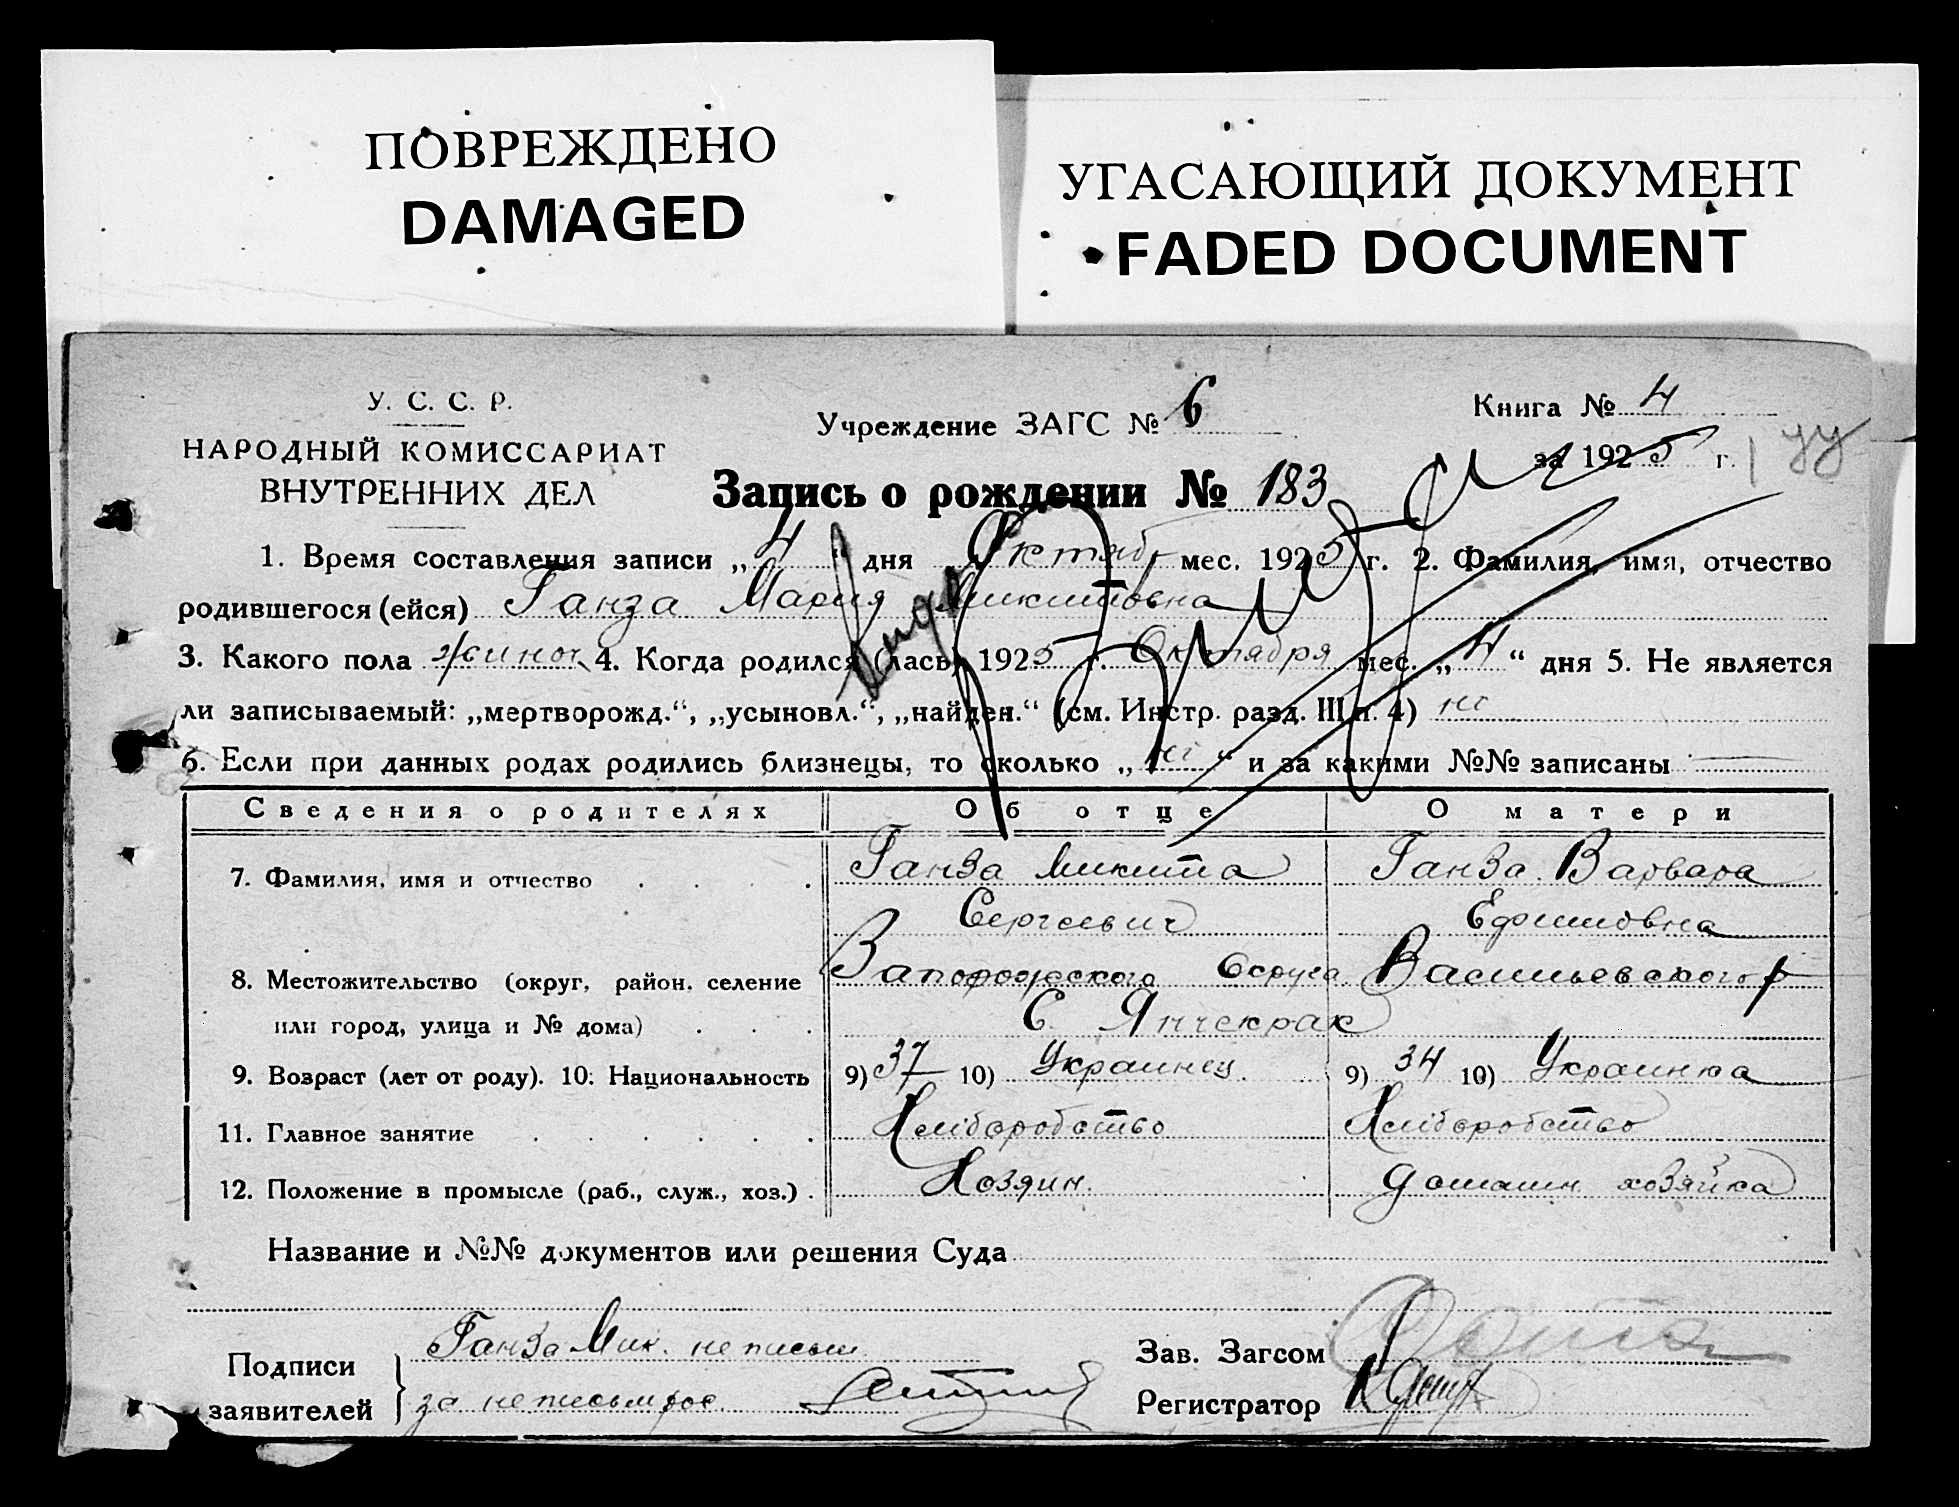 ПОВРЕЖДЕНО
DAMAGED
УГАСАЮЩИЙ ДОКУМЕНТ
FADED DOCUMENT
У. С. С. Р.
НАРОДНЫЙ КОМИССАРИАТ
ВНУТРЕННИХ ДЕЛ
Учреждение ЗАГС № 6
Книга № 4
за 1925 г.
Запись о рождении № 183
1. Время составления записи „4“ дня Октяб мес. 1925 г. 2. Фамилия, имя, отчество
родившегося (ейся) Ганза Мария Микитовна
3. Какого пола жиноч 4. Когда родился (лась) 1925 г. Октября мес. „4“ дня 5. Не является
ли записываемый: „мертворожд.“, „усыновл.“, „найден.“ (см. Инстр. разд. III п. 4) ні
6. Если при данных родах родились близнецы, то сколько „ні“ и за какими №№ записаны —
Сведения о родителях Об отце О матери
7. Фамилия, имя и отчество Ганза Микита Ганза Варвара
Сергеевич Ефимовна
8. Местожительство (округ, район, селение Запорожского Округа Васильевского р
или город, улица и № дома) С. Янчекрак
9. Возраст (лет от роду). 10. Национальность 9) 37 10) Украинец 9) 34 10) Украинка
11. Главное занятие Хлібаробство Хлібаробство
12. Положение в промысле (раб., служ., хоз.) Хозяин. домашн хозяйка
Название и №№ документов или решения Суда
Подписи Ганза Мик. неписьм. Зав. Загсом
заявителей за неписьм Регистратор